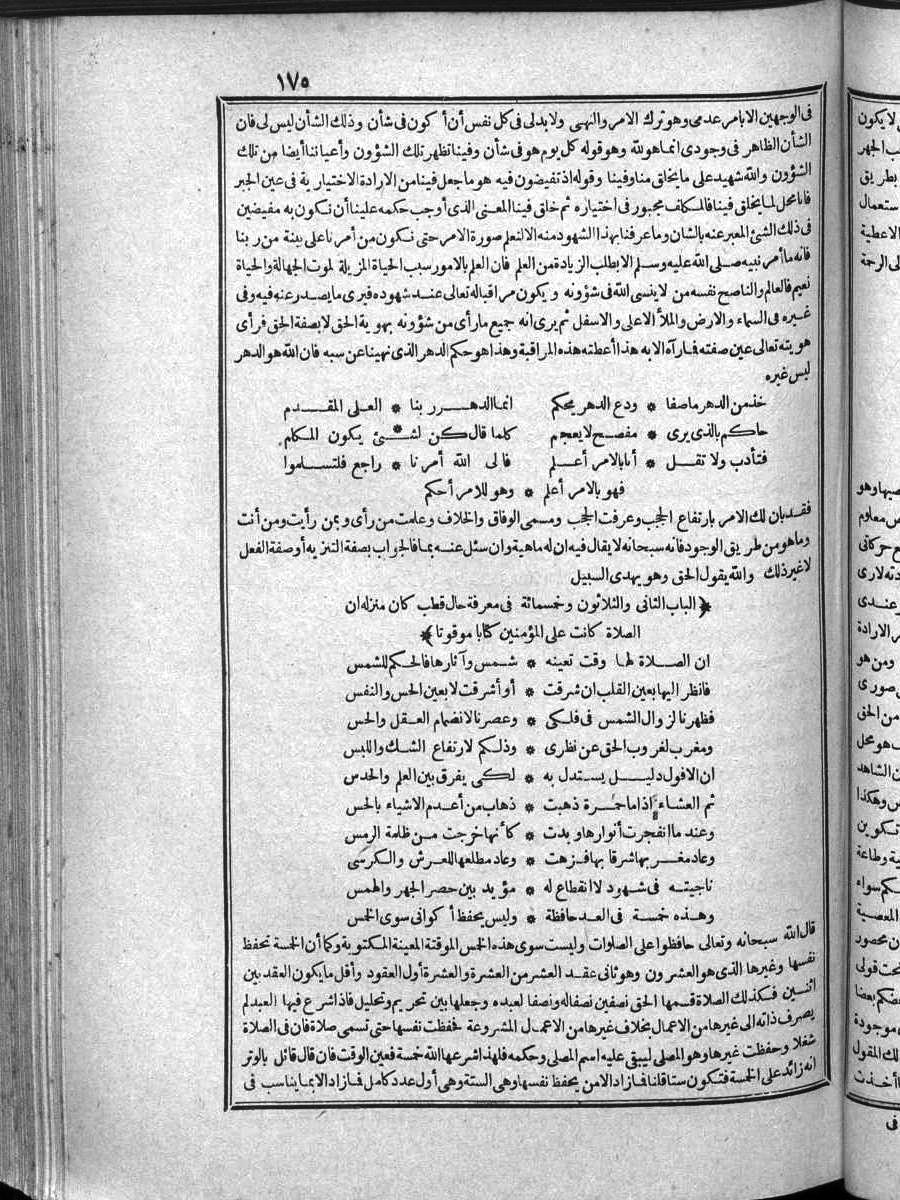 ١٧٥
فى الوجهين الا بامر عدمى وهو ترك الامر والنهى ولا بد لى فى كل نفس أن أكون فى شأن وذلك الشأن ليس لى فان
الشأن الظاهر فى وجودى انما هو لله وهو قوله كل يوم هو فى شأن وفينا تظهر تلك الشؤون وأعياننا أيضا من تلك
الشؤون والله شهيد على ما يخلق منا وفينا وقوله اذ تفيضون فيه هو ما جعل فينا من الارادة الاختيارية فى عين الجبر
فانا محل لما يخلق فينا فالمكلف مجبور فى اختياره ثم خلق فينا المعنى الذى أوجب حكمه علينا أن نكون به مفيضين
فى ذلك الشئ المعبر عنه بالشان وما عرفنا بهذا الشهود منه الا لنعلم صورة الامر حتى نكون من أمرنا على بينة من ربنا
فانه ما أمر نبيه صلى الله عليه وسلم الا بطلب الزيادة من العلم فان العلم بالامور سبب الحياة المزيلة لموت الجهالة والحياة
نعيم فالعالم والناصح نفسه من لا ينسى الله فى شؤونه ويكون مراقبا له تعالى عند شهوده فيرى ما يصدر عنه فيه وفى
غيره فى السماء والارض والملأ الاعلى والاسفل ثم يرى انه جميع ما رأى من شؤونه بهوية الحق لا بصفة الحق فرأى
هويته تعالى عين صفته فما رآه الا به هذا أعطته هذه المراقبة وهذا هو حكم الدهر الذى نهينا عن سبه فان الله هو الدهر
ليس غيره
خذ من الدهر ما صفا * ودع الدهر يحكم انما الدهر ربنا * العلى المقدم
حاكم بالذى يرى * مفصح لا يعجم كلما قال كن لشئ * يكون المكلم
فتأدب ولا تقل * أنا بالامر أعلم فالى الله أمرنا * راجع فلتسلموا
فهو بالامر أعلم * وهو للامر أحكم
فقد بان لك الامر بارتفاع الحجب وعرفت الحجب ومسمى الوفاق والخلاف وعلمت من رأى وبمن رأيت ومن أنت
وما هو من طريق الوجود فانه سبحانه لا يقال فيه ان له ماهية وان سئل عنه بما فالجواب بصفة التنزيه أو صفة الفعل
لا غير ذلك والله يقول الحق وهو يهدى السبيل
﴿الباب الثانى والثلاثون وخمسمائة فى معرفة حال قطب كان منزله ان
الصلاة كانت على المؤمنين كتابا موقوتا﴾
ان الصلاة لها وقت تعينه * شمس وآثارها فالحكم للشمس
فانظر اليها بعين القلب ان شرقت * أو أشرقت لا بعين الحس والنفس
فظهرنا لزوال الشمس فى فلكى * وعصرنا لانضمام العقل والحس
ومغرب لغروب الحق عن نظرى * وذلكم لارتفاع الشك واللبس
ان الافول دليل يستدل به * لكى يفرق بين العلم والحدس
ثم العشاء اذا ما حمرة ذهبت * ذهاب من أعدم الاشياء بالحس
وعند ما انفجرت أنوارها وبدت * كأنها خرجت من ظلمة الرمس
وعاد مغربها شرقا بها فزهت * وعاد مطلعها للعرش والكرسى
ناجيته فى شهود لا انقطاع له * مؤيد بين حصر الجهر والهمس
وهذه خمسة فى العد حافظة * وليس يحفظ أكوانى سوى الخمس
قال الله سبحانه وتعالى حافظوا على الصلوات وليست سوى هذه الخمس الموقتة المعينة المكتوبة وكما أن الخمسة تحفظ
نفسها وغيرها الذى هو العشرون وهو ثانى عقد العشر من العشرة والعشرة أول العقود وأقل ما يكون العقد بين
اثنين فكذلك الصلاة قسمها الحق نصفين نصفا له ونصفا لعبده وجعلها بين تحريم وتحليل فاذا شرع فيها العبد لم
يصرف ذاته الى غيرها من الاعمال بخلاف غيرها من الاعمال المشروعة فحفظت نفسها حتى تسمى صلاة فان فى الصلاة
شغلا وحفظت غيرها وهو المصلى ليبقى عليه اسم المصلى وحكمه فلهذا شرعها الله خمسة فعين الوقت فان قال قائل بالوتر
انه زائد على الخمسة فتكون ستا قلنا فما زاد الا من يحفظ نفسها وهى الستة وهى أول عدد كامل فما زاد الا بما يناسب فى